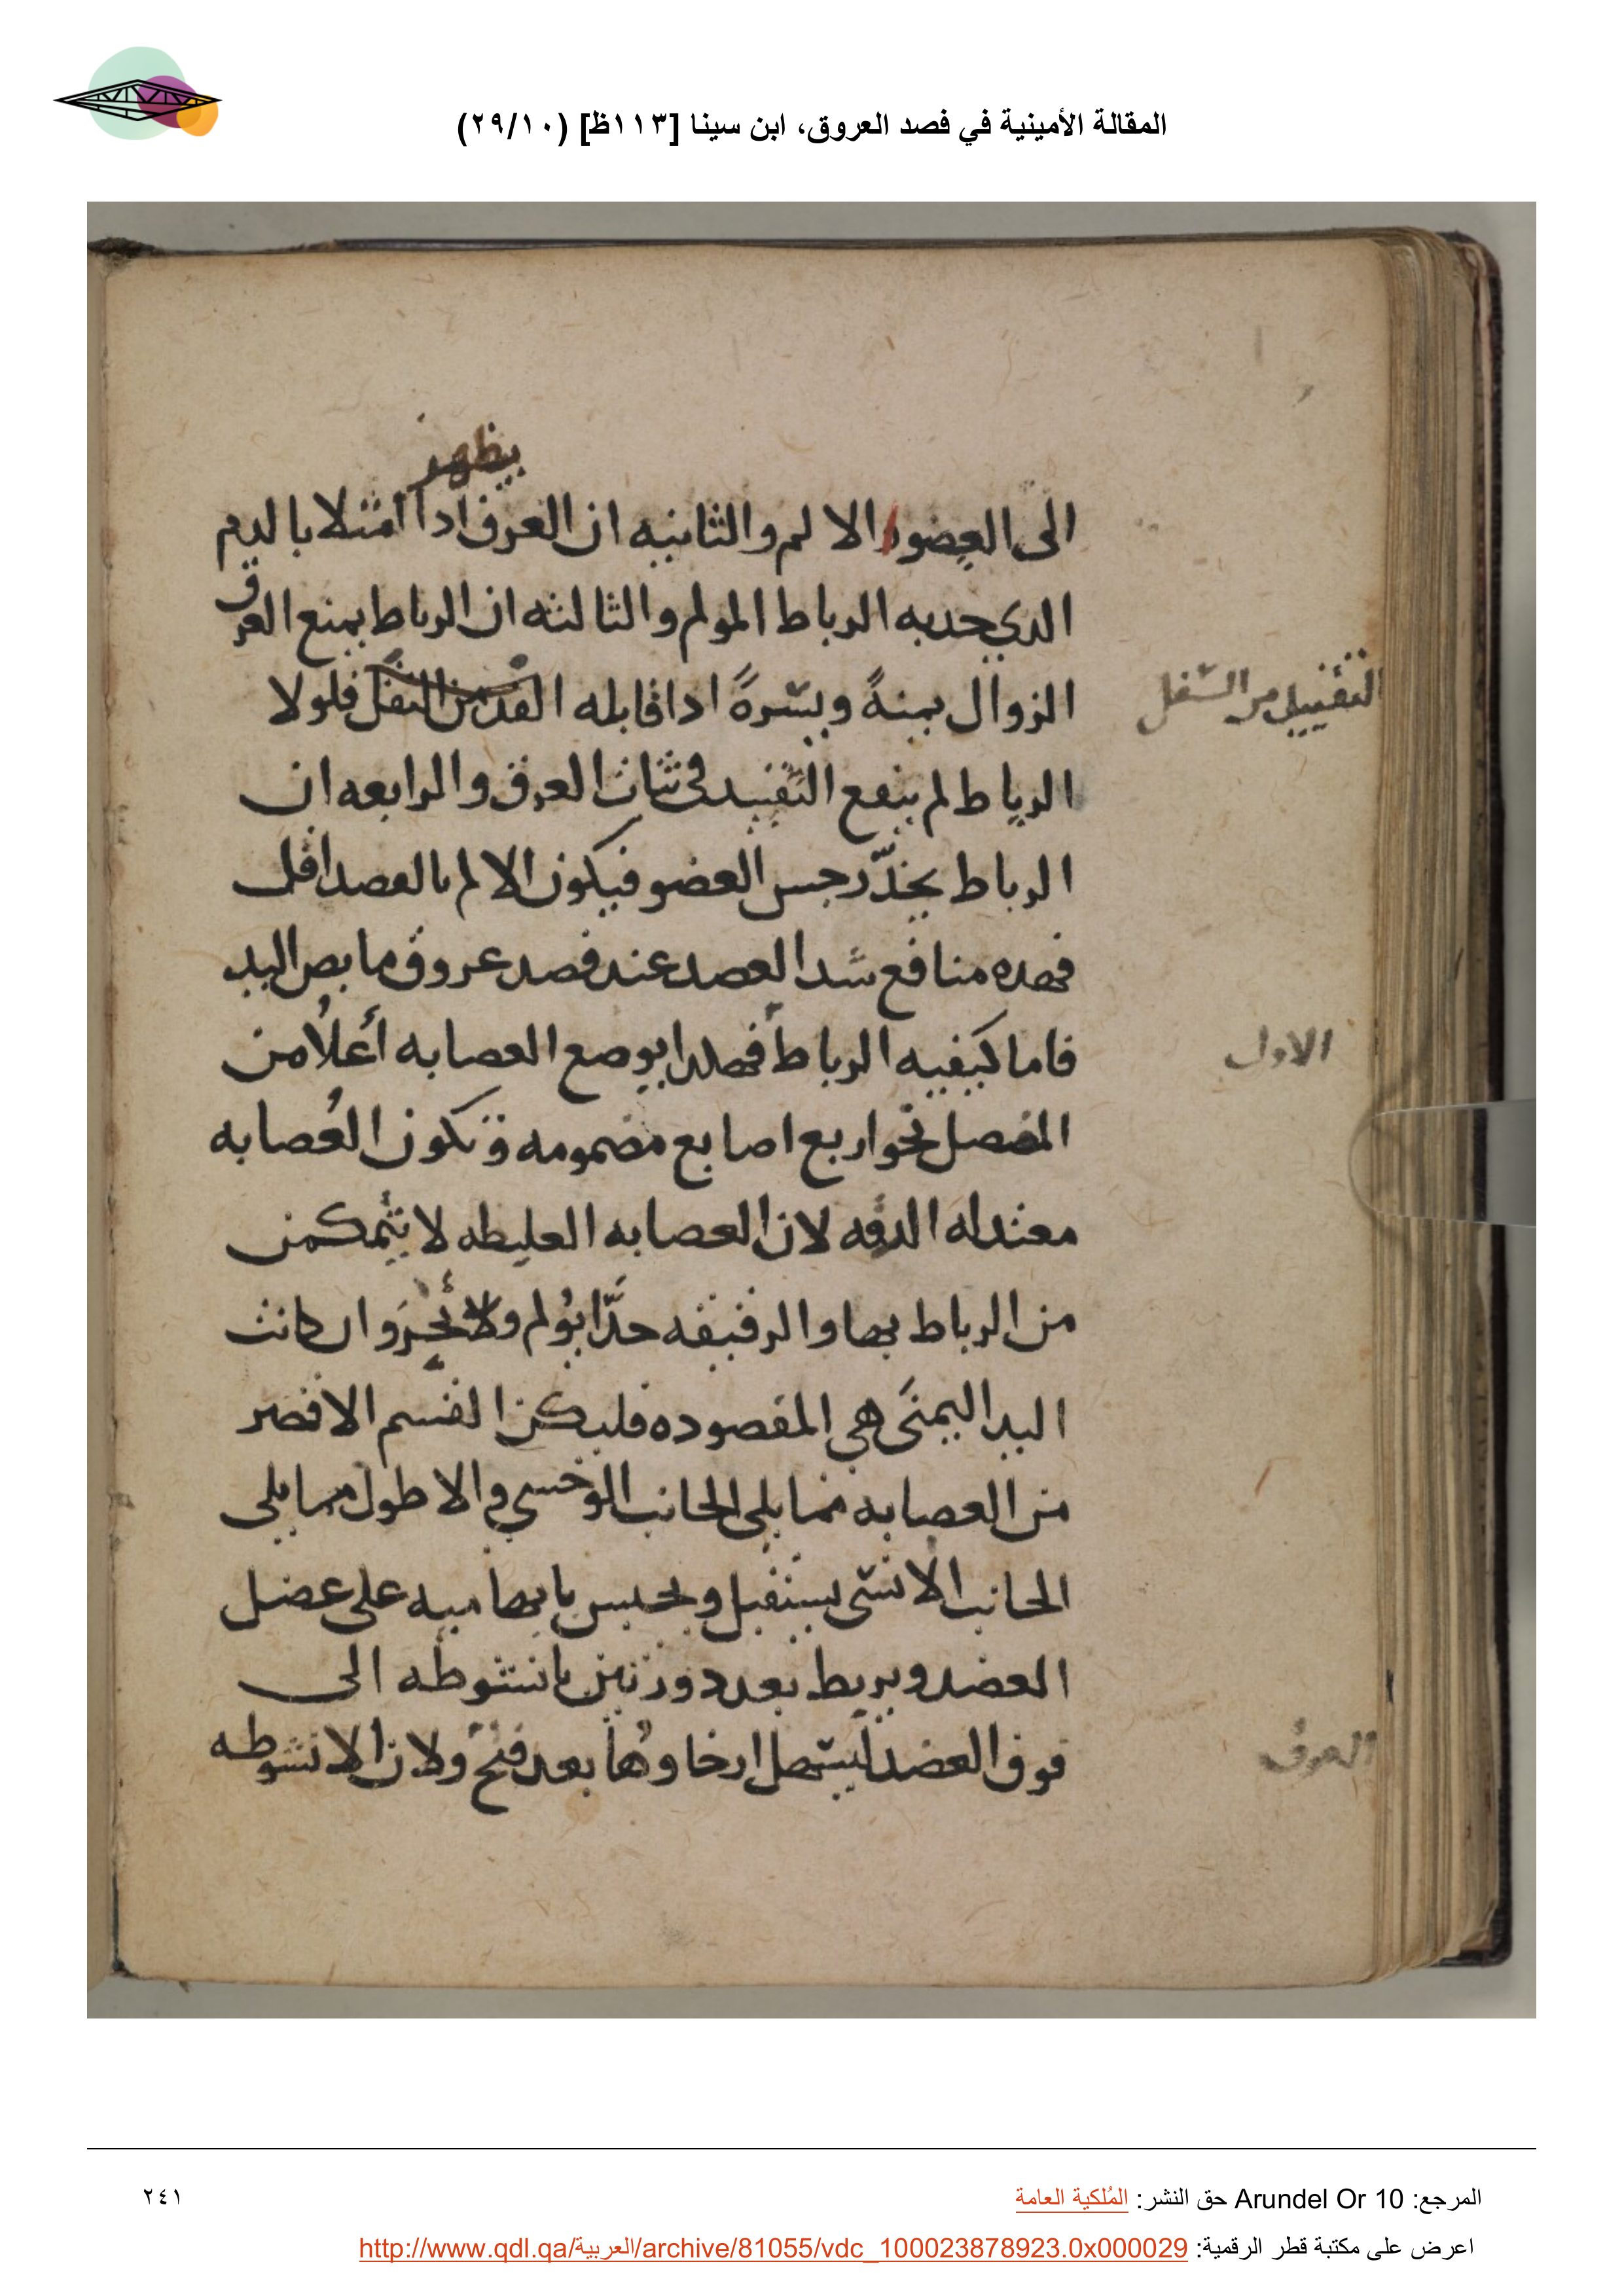 المقالة الأمينية في فصد العروق، ابن سينا [١١٣ظ] (٢٩/١٠)
يظهر
الى العضو الالم والثانيه ان العرق اذا امتلا بالدم
الذي جذبه الرباط المولم والثالثه ان الرباط يمنع العرق
الزوال يمنةً ويسّرةً اذا قابله فلولا
التفتيل من السّفل
الرباط لم ينفع التقييد فى ثبات العرق والرابعه ان
الرباط يخدّر حس العضو فيكون الالم بالفصد اقل
فهده منافع شد العضد عند فصد عروق مابض اليد
فاما كيفيه الرباط فهكدا يوضع العصابه أعلاُ من
الاول
المفصل نحو اربع اصابع مضمومه وتكون العُصابه
معتدله الدقه لان العصابه الغليظه لا يتمكن
من الرباط بها والرقيقه جدّا يؤلم ولا وان كانت
اليد اليمنَى هي المقصوده فليكن القسم الاقصر
من العصابه مما يلى الجانب الوحشي والاطول مما يلى
الجانب الانسّى يستقبل ويحبس بابهاميه على عضل
العضد ويربط بعد دورتين بانشوطه الى
فوق العضد ليسّهل ارخاوُها بعد فتح ولان الانشوطه
العرق
المرجع: Arundel Or 10 حق النشر: المُلكية العامة
٢٤١
اعرض على مكتبة قطر الرقمية: http://www.qdl.qa/العربية/archive/81055/vdc_100023878923.0x000029